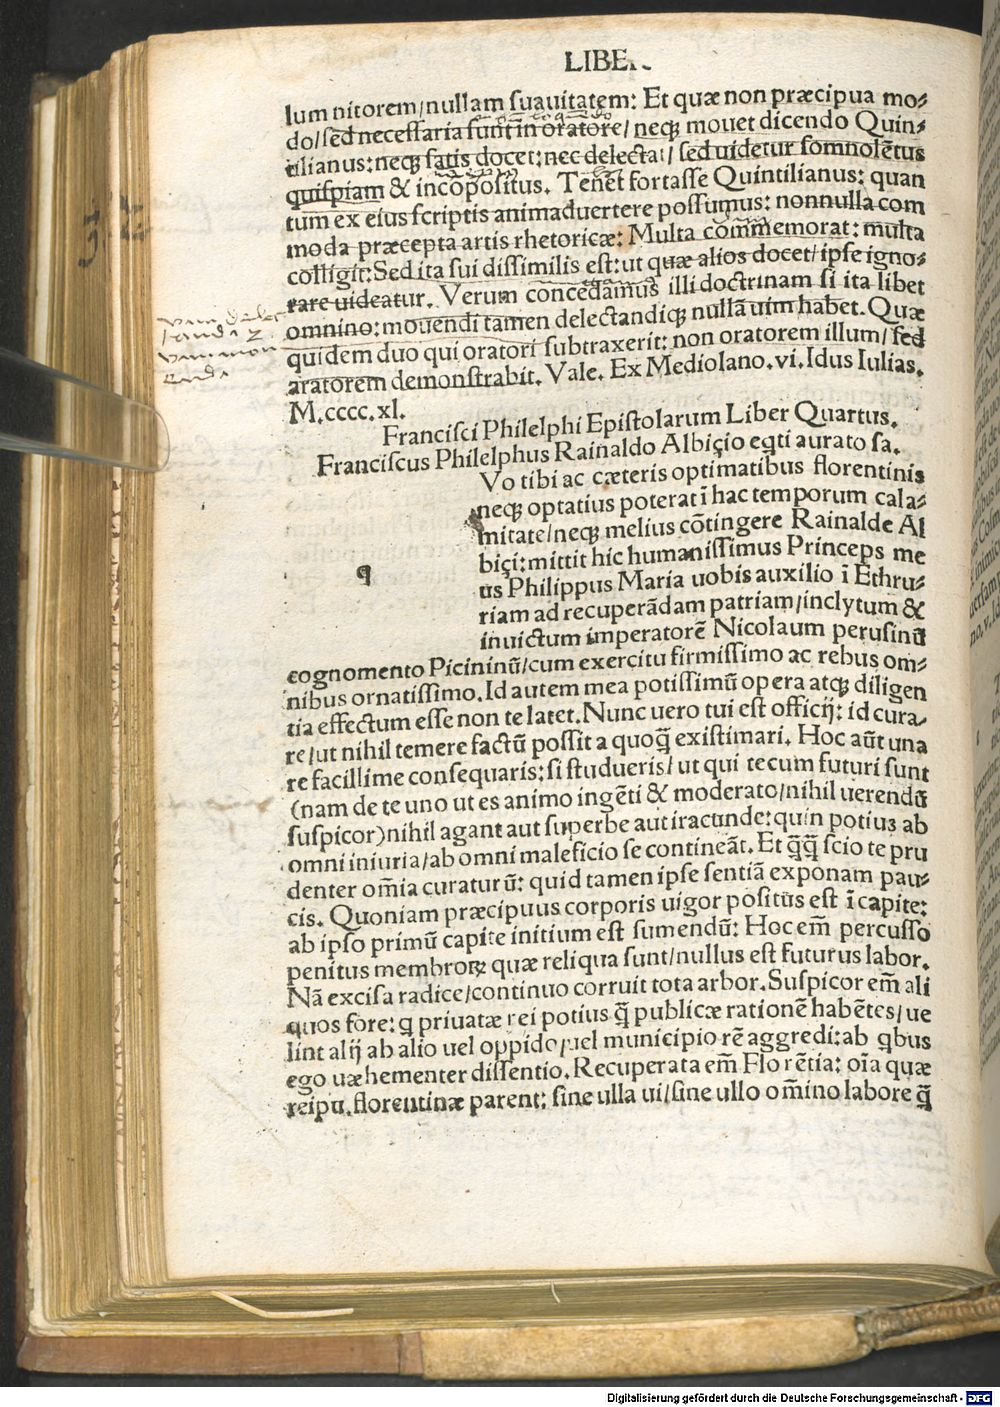 LIBER
lum nitorem/nullam suauitatem: Et quæ non præcipua mo⸗
do/sed necessaria sunt in oratore/neqꝫ mouet dicendo Quin⸗
tilianus: neqꝫ satis docet: nec delectat/ sed uidetur somnolētus
quispiam & incōpositus. Tenet fortasse Quintilianus: quan
tum ex eius scriptis animaduertere possumus: nonnulla com
moda præcepta artis rhetoricæ: Multa cōmemorat: multa
colligit: Sed ita sui dissimilis est: ut quæ alios docet/ ipse igno⸗
rare uideatur. Verum concedamus illi doctrinam si ita libet
omnino: mouendi tamen delectandiqꝫ nullā uim habet. Quæ
quidem duo qui oratori subtraxerit: non oratorem illum/ sed
aratorem demonstrabit. Vale. Ex Mediolano. vi. Idus Iulias.
M.cccc.xl.
Francisci Philelphi Epistolarum Liber Quartus.
Franciscus Philelphus Rainaldo Albiçio eqti aurato sa.
q
Vo tibi ac cæteris optimatibus florentinis
neqꝫ optatius poterat ī hac temporum cala⸗
mitate/neqꝫ melius cōtingere Rainalde Al
biçi: mittit hic humanissimus Princeps me
us Philippus Maria uobis auxilio ī Ethru⸗
riam ad recuperādam patriam/inclytum &
inuictum imperatorē Nicolaum perusinū
cognomento Picininū/cum exercitu firmissimo ac rebus om⸗
nibus ornatissimo. Id autem mea potissimū opera atqꝫ diligen
tia effectum esse non te latet. Nunc uero tui est officij: id cura⸗
re/ut nihil temere factū possit a quoq̄ existimari. Hoc aūt una
re facillime consequaris: si studueris/ ut qui tecum futuri sunt
(nam de te uno ut es animo ingēti & moderato/nihil uerendū
suspicor) nihil agant aut superbe aut iracunde: quin potius ab
omni iniuria/ab omni maleficio se contineāt. Et q̄q̄ scio te pru
denter om̄ia curaturū: quid tamen ipse sentiā exponam pau⸗
cis. Quoniam præcipuus corporis uigor positus est ī capite:
ab ipso primū capite initium est sumendū: Hoc em̄ percusso
penitus membroꝝ quæ reliqua sunt/nullus est futurus labor.
Nā excisa radice/continuo corruit tota arbor. Suspicor em̄ ali
quos fore: q priuatæ rei potius q̄ publicæ rationē habētes/ ue
lint alij ab alio uel oppido/uel municipio rē aggredi: ab qbus
ego uæhementer dissentio. Recuperata em̄ Florētia: oīa quæ
reipu. florentinæ parent: sine ulla ui/sine ullo om̄ino labore q̄
Digitalisierung gefördert durch die Deutsche Forschungsgemeinschaft - DFG